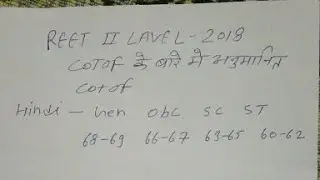 REET II LAVEL-2018
COTOF के बारे में अनुमानित
cotof
Hindi - Gen Obc SC ST
68-69 66-67 63-65 60-62